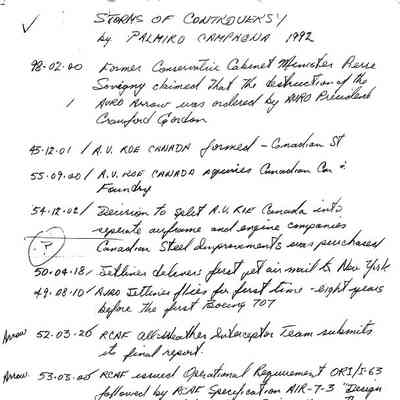 STORMS OF CONTROVERSY
by PALMIRO CAMPAGNA 1992
98-02-00 Former Conservative Cabinet Minister Pierre
Sevigny claimed that the destruction of the
AVRO Arrow was ordered by AVRO President
Crawford Gordon
45-12-01 / A.V. ROE CANADA formed - Canadian St
55-09-00 / A.V. ROE CANADA aquires Canadian Car &
Foundry
54-12-02 / Decision to split A.V. ROE Canada into
seperate airframe and engine companies
? Canadian Steel Improvements was purchased
50-04-18 / Jetliner delivers first jet air mail to New York
49-08-10 / AVRO Jetliner flies for first time - eight years
before the first Boeing 707
Arrow 52-03-20 RCAF All-Weather Interceptor Team submits
its final report.
Arrow 53-03-00 RCAF issued Operational Requirement OR1/1-63
followed by RCAF Specification AIR-7-3 "Design